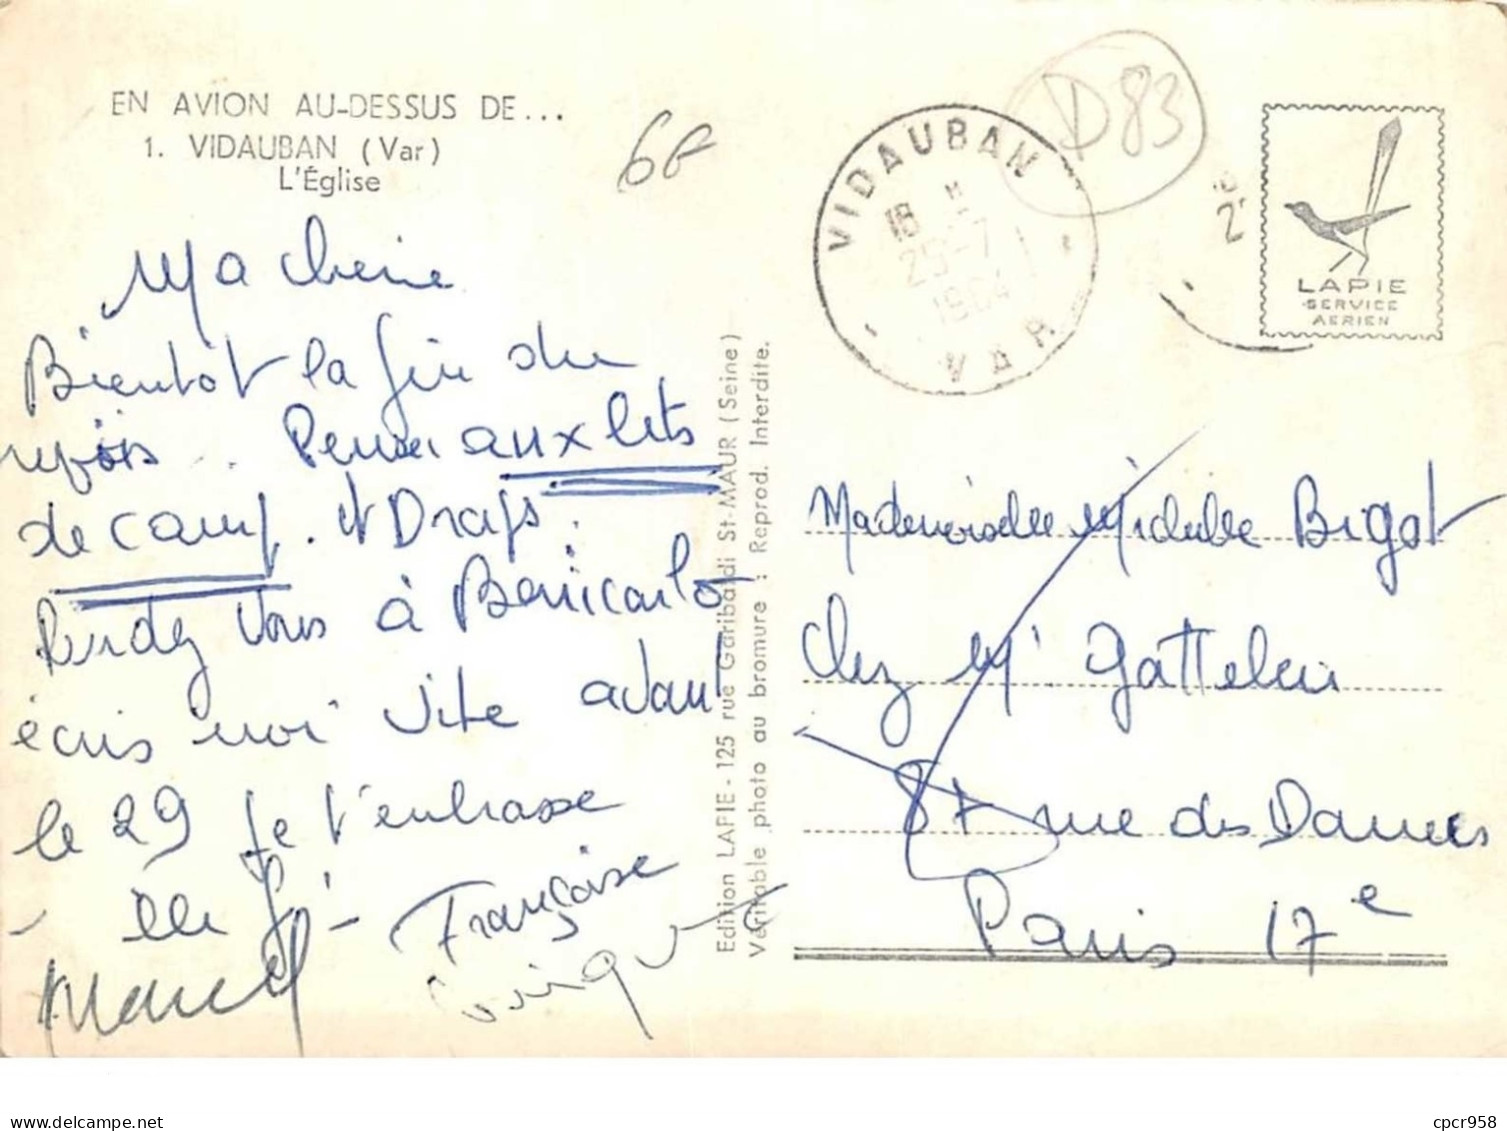 EN AVION AU-DESSUS DE...
1. VIDAUBAN (Var)
L'Église
6F
D83
VIDAUBAN
18 H
25-7
1964
VAR
LAPIE
SERVICE
AERIEN
Ma cherie
Bientôt la fin du
mois. Penser aux lits
de camp. et Draps.
Rendez vous à Benicarlo
écris moi vite avant
le 29 Je t'embrasse
Françoise
Marcel
Edition LAPIE - 125 rue Garibaldi St-MAUR (Seine)
Véritable photo au bromure : Reprod. Interdite.
Mademoiselle Michelle Bigot
Chez Mr Gattelin
87 rue des Dames
Paris 17e
cpcr958